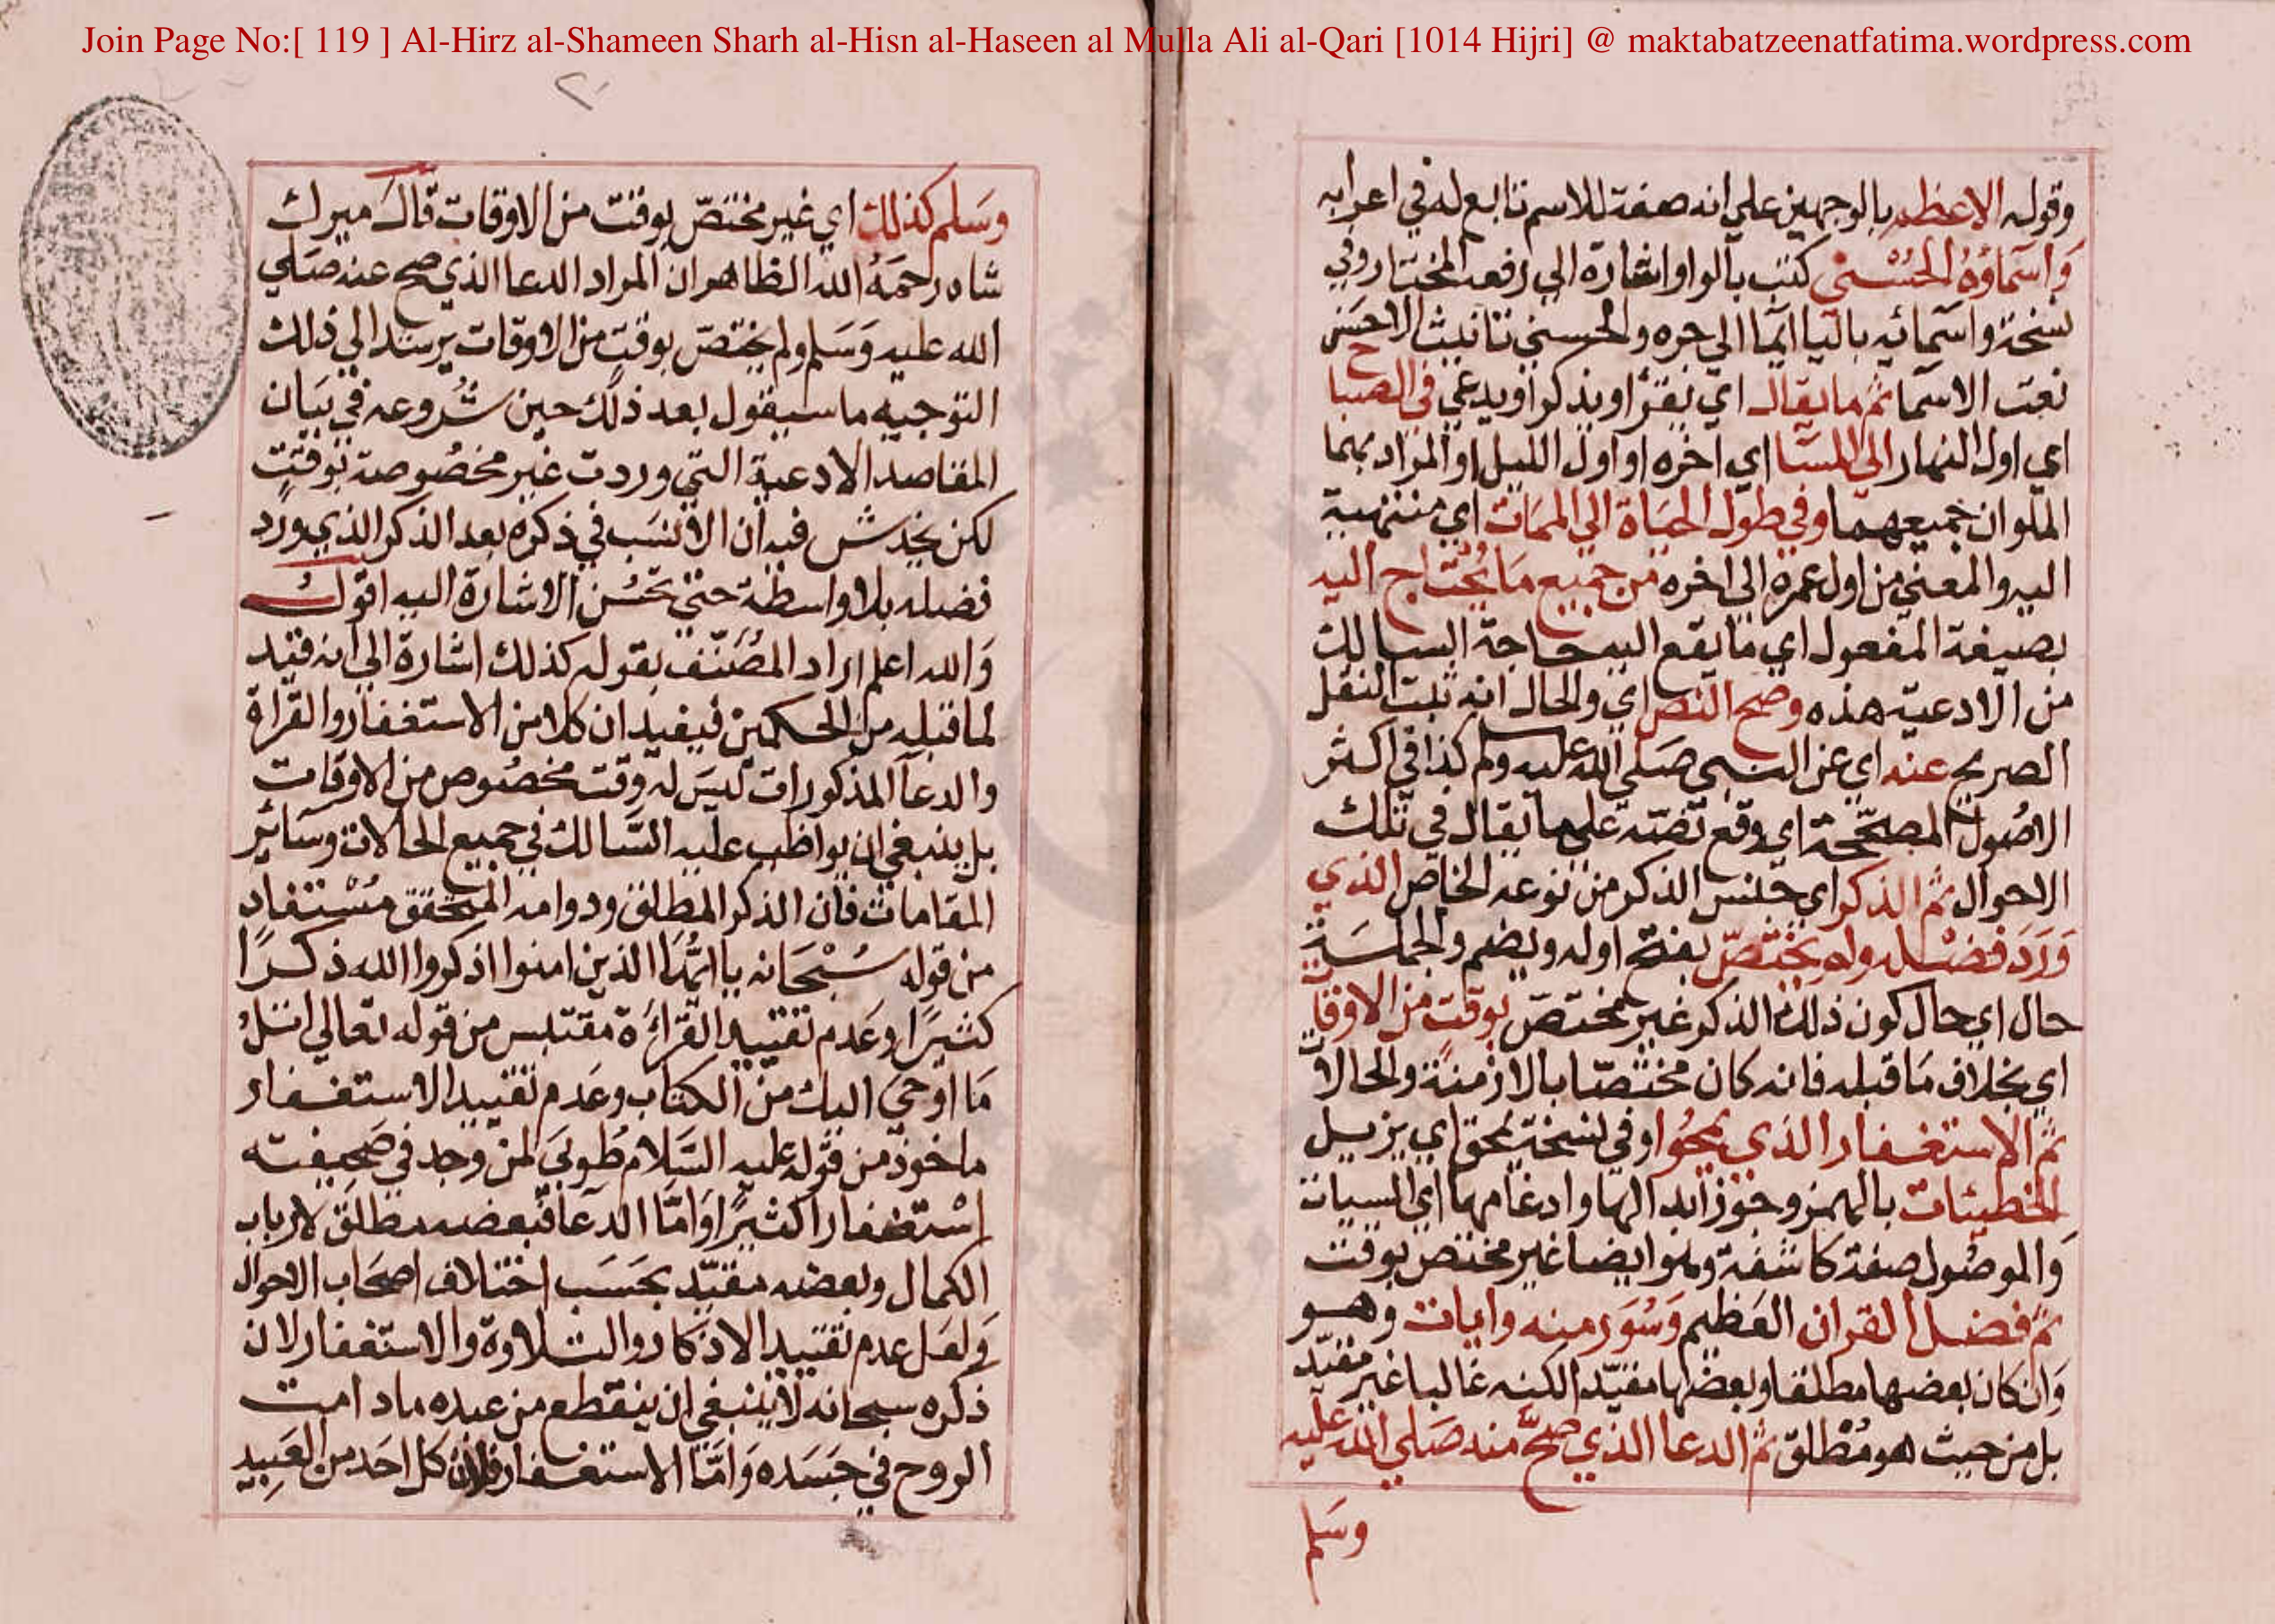 Join Page No:[ 119 ] Al-Hirz al-Shameen Sharh al-Hisn al-Haseen al Mulla Ali al-Qari [1014 Hijri] @ maktabatzeenatfatima.wordpress.com
وقوله الاعظم بالوجهين علي انه صفة للاسم تابع له في اعرابه
وَاسَماؤُهُ الحُسْنى كتب بالواو اشارة الي رفعه المختار وفي
نسخة واسمائه باليا ايما الي جره والحسني تانيث الاحسن
نعت الاسما ثم ما يقال اي يقرأ او يذكر او يدعي في الصباح
اي اول النهار الى المسَا اي اخره او اول الليل او المراد بهما
الملوان جميعهما وفي طول الحيَاة الي الممَات اي منتهية
اليه والمعني من اول عمره الي اخره من جميع مَا يُحْتَاج اليه
بصيغة المفعول اي ما يقع اليه حاجة السالك
من الادعية هذه وصح النص اي والحال انه ثبت النقل
الصريح عنه اي عن النبي صَلي الله عليه وسلم كذا في اكثر
الاصُول المصحّحة اي وقع نصّه علي ما يقال في تلك
الاحوال ثم الذكر اي جنس الذكر من نوعه الخاص الذي
وَرَدَ فضله ولم يختصّ بفتح اوله ويضم والجملة
حال اي حال كون ذلك الذكر غير مختصّ بوقتٍ من الاوقات
اي بخلاف مَا قبله فانه كان مختصّا بالازمنة والحالات
ثم الاستغفار الذي يمحُوا وفي نسخة يمحق اي يزيل
الخطيئات بالهمز وجوّز ابدالها وادغامها اي السيات
وَالموصُول صفة كاشفة وهوا يضا غير مختص بوقت
ثم فضل القران العَظيم وَسُوَر منه وايات وهو
وَان كان بعضها مطلقا وبعضها مقيّدا لكنه غالبا غير مقيّد
بل من حيث هو مُطْلق ثم الدعا الذي صحَّ منه صَلي الله عليه
وسَلم
وسَلم كذلك اي غير مختصّ بوقت من الاوقات قالَ ميرك
شاه رحمَهُ الله الظاهر ان المراد الدعا الذي صح عنه صَلي
الله عليه وَسَلم ولم يختصّ بوقتٍ من الاوقات يرسند الي ذلك
التوجيه ما سيقول بعد ذلك حين شُروعه في بيَان
المقاصد الادعية التي وردت غير مخصُوصة بوقت
لكن يخدش فيه ان الانسَب في ذكره بعد الذكر الذي ورَد
فضله بلا واسطة حتي تحسُن الاشارة اليه اقول
وَالله اعلم اراد المصَنّف بقوله كذلك اشارة الي انه قيد
لما قبله من الحكمين فيفيد ان كلا من الاستغفار والقراة
والدعا المذكورات ليسَ له وقت مخصُوص من الاوقات
بل ينبغي ان يواظب عليه السَّالك في جميع الحالات وسَائر
المقامات فان الذكر المطلق ودوامه المتحقق مُسْتفاد
من قوله سُبْحَانه يا ايُّهَا الذين امنوا اذكروا الله ذكرًا
كثيرًا وعَدم تقييد القراءة مقتبس من قوله تعالي اتلُ
مَا اوحيَ اليك من الكتاب وعَدم تقييد الاستغفار
ماخوذ من قوله عليه السَّلام طُوبَي لمن وجد في صَحيفته
اسْتغفارا كثيرًا وَامّا الدعَا فبعضه مطلق لارباب
الكمال وبعضه مقيّد بحَسَب اختلاف اصحَاب الاحوال
وَلعَل عدم تقييد الاذكار والتلاوة والاستغفار لان
ذكره سبحانه لا ينبغي ان ينقطع من عبده ما دامت
الروح في جسَده وَامّا الاستغفار فلان كل احَد من العَبيد